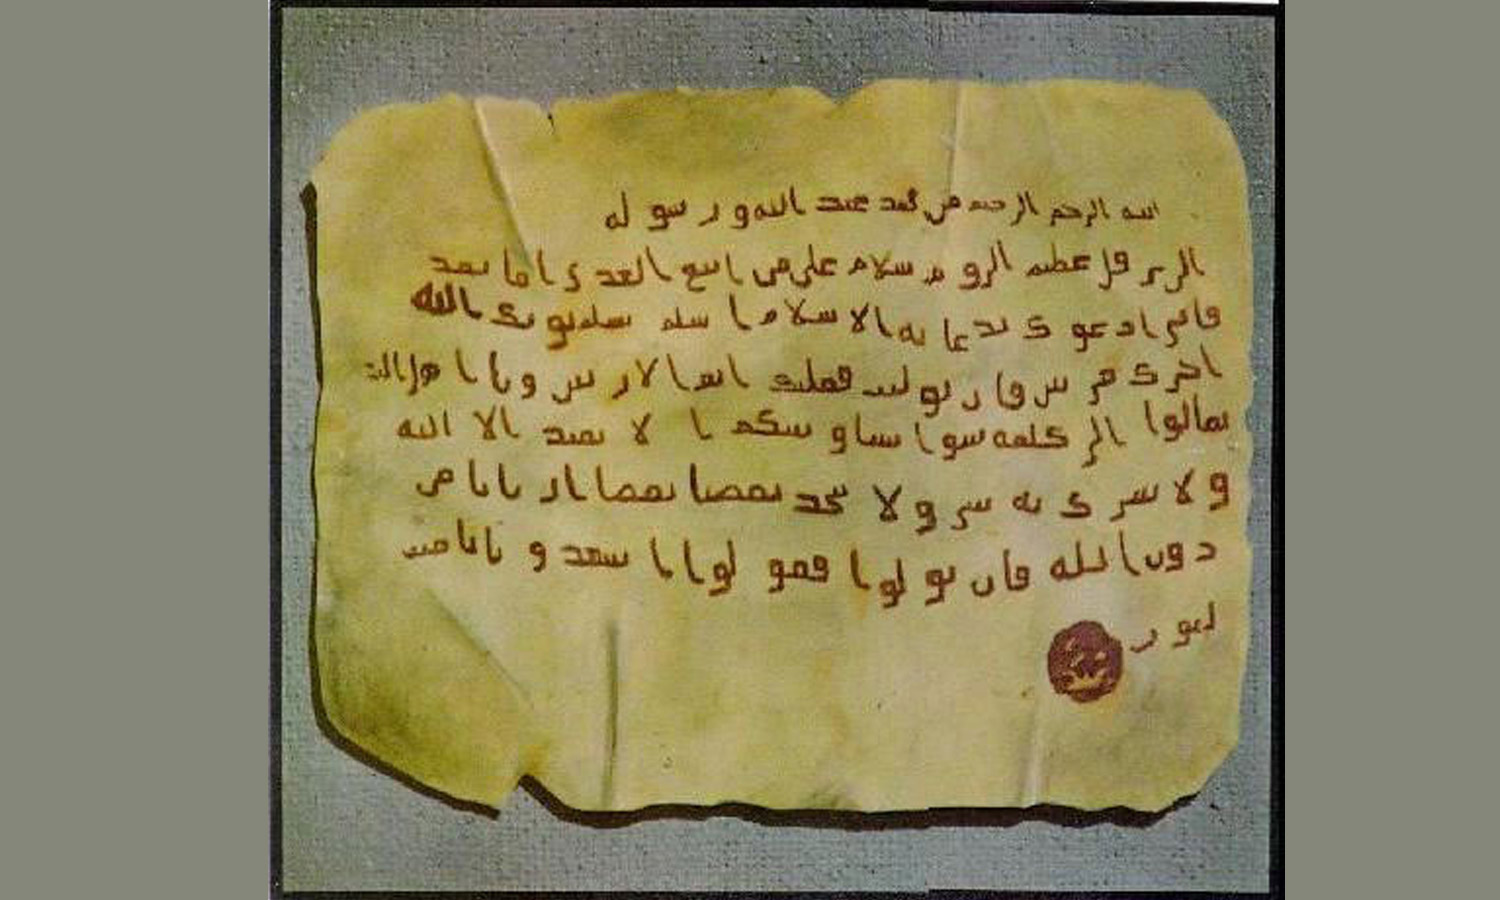 الله الرحم الرحيم من محمد عبد الله ورسوله
الى هرقل عظيم الروم سلام على من اتبع الهدى اما بعد
فانى ادعوك بدعاية الاسلام اسلم تسلم يوتك الله
اجرك مرتين فان توليت فعليك اثم الاريسين ويا اهل الكت
تعالوا الى كلمة سوا بيننا وبينكم ا لا نعبد الا الله
ولا نشرك به شى ولا نتخذ بعضنا بعضا اربابا من
دون الله فان تولوا فقولوا ا شهدو باناا مسـ
لمون